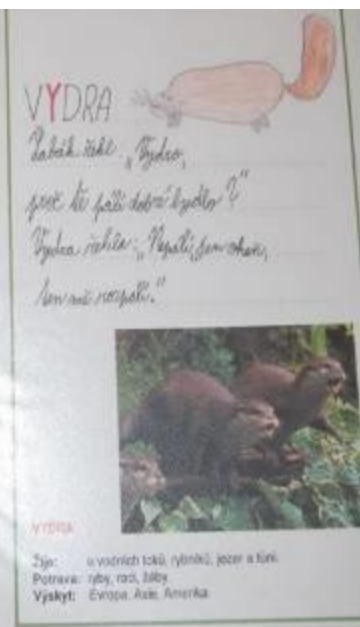 VYDRA
Žabák řekl: „Vydro,
proč tě pálí dobré bydlo?"
Vydra řekla: „Nepálí, jen oheň,
ten mě rozpálí."
VYDRA
Žije: u vodních toků, rybníků, jezer a tůní.
Potrava: ryby, raci, žáby.
Výskyt: Evropa, Asie, Amerika.